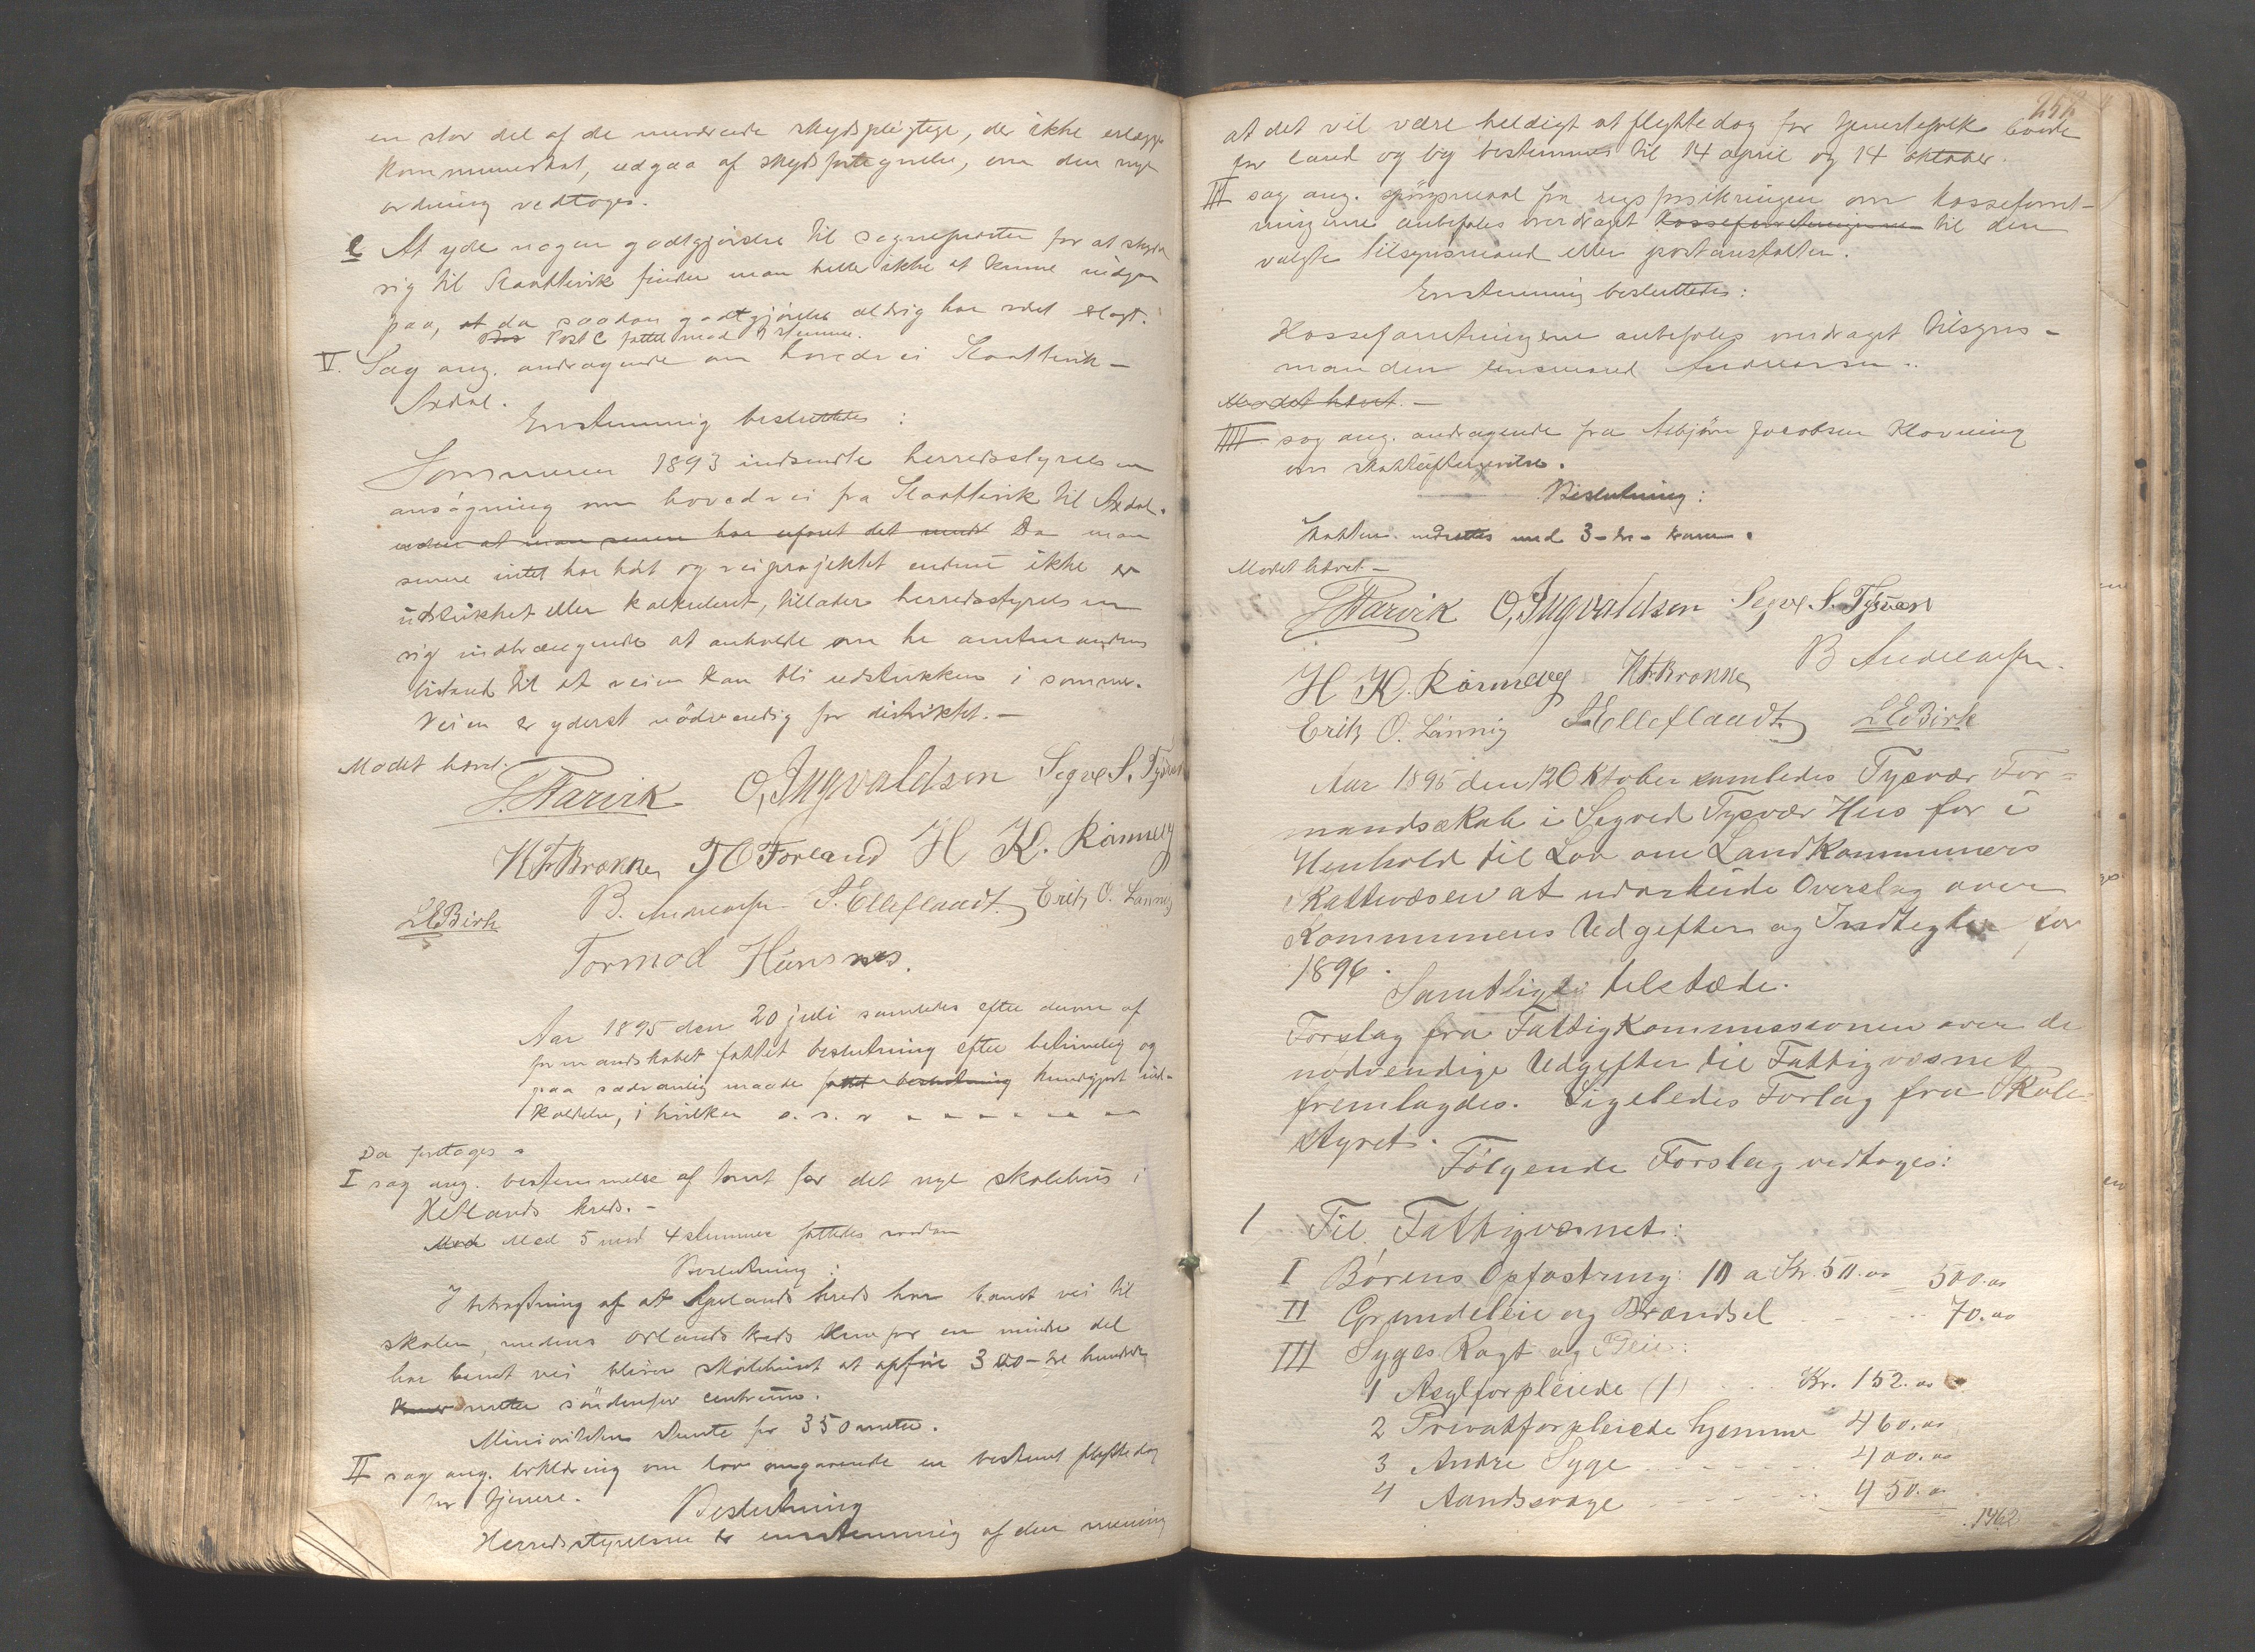 en stor del af de nuværende skydspligtige, der ikke erlægge
kommuneskat, udgaa af skydsfortegnelse, om den nye
ordning vedtoges.
c At yde nogen godtgjörelse til sognepresten for at skydse
sig til Slaattevik finder man heller ikke at kunne indgaa
paa, at da saadan godtgjörelse aldrig har vdet
Post C fattet med stemme.
V. Sag ang. andragende om hovedvei Slaattevik-
Axdal.
Enstemmig besluttedes:
Sommeren 1893 indsendte herredsstyrelsen
ansögning om hovedvei fra Slaattevik til Axdal.
uden at man senere har erfaret det mindste Da man
senere intet har hört og veiprojektet endnu ikke er
udstukket eller kalkuleret, tillader herredsstyrelsen
sig indtrængende at anholde om hr amtmandens
bistand til at veien kan bli udstukken i sommer.
Veien er yderst nödvendig for distriktet.-
Mödet hævet.
S. Aarvik O, Ingvaldsen Segve S. Tysvær
N Fr Brokke, T O Forland H K. Rönnevg
B. Andreasen S. Elleflaadt. Erik O. Lanning
L E Birk
Tormod Hunsnes.
Aar 1895 den 20 juli samledes efter denne af
formandskabet fattet beslutning efter betimelig og
paa sædvanlig maade fattet beslutning kundgjort ind-
kaldelse, i hvilken o. s. v
Da foretoges
I sag ang. bestemmelse af tomt for det nye skolehus i
Hetlands kreds.-
Med Med 5 mod 4 stemmer fattedes saadan
Beslutning:
I betragtning af at Apelands kreds har banet vei til
skolen, medens Örlands kreds kun for en mindre del
har banet vei bliver skolehuset at opföre 300 - tre hundrede
meter söndenfor centrum.
Minoriteten stemte for 350 meter.
II sag ang. erklæring om lov angaaende en bestemt flyttedag
for tjenere.
Beslutning
Herredsstyrelsen er enstemmig af den mening
252
at det vil være heldigt at flyttedag for tjenestefolk baade
for land og by bestemmes til 14 april og 14 oktober.
III sag ang. spörgsmaal fra rigsforsikringen om kasseforret-
ningerne anbefales overdraget kasseforretningerne til den
valgte tilsynsmand eller postanstalten.
Enstemmig besluttedes:
Kasseforretningerne anbefales overdraget tilsyns-
manden lensmand Andreasen.
Mödet hævet.-
IIII sag ang. andragende fra Asbjörn Jacobsen Klovning
om skatteeftergivelse.
Beslutning:
Skatten nedsættes med 3-tre-kroner.
Mödet hævet.-
S Aarvik O, Ingvaldsen Segve S. Tysvær
H K. Rönnevg N Fr Brokke, B Andreasen.
Erik O. Lanning S. Elleflaadt. L E Birk
Aar 1895 den 12 Oktober samledes Tysvær For-
mandsskab i Segved Tysvær Hus for i
Henhold til Lov om Landkommuners
Skattevæsen at udarbeide Overslag over
Kommunens Udgifter og Indtegter for
1896.
Samtlige tilstæde.
Forslag fra Fattigkommissionen over de
nødvendige Udgifter til Fattigvæsnet
fremlagdes. Ligeledes Forlag fra Skole-
styret.
Fölgende Forslag vedtoges:
1 Til Fattigvæsnet:
I Börens Opfostring: 10 a Kr. 50.00 500.00
II Grundeleie og Brændsel 70.00
III Syges Rögt og Pleie:
1 Asylforpleiede (1) Kr. 152.00
2 Privatforpleiede hjemme 460.00
3 Andre Syge 400.00
4 Aandssvage 450.00
1462